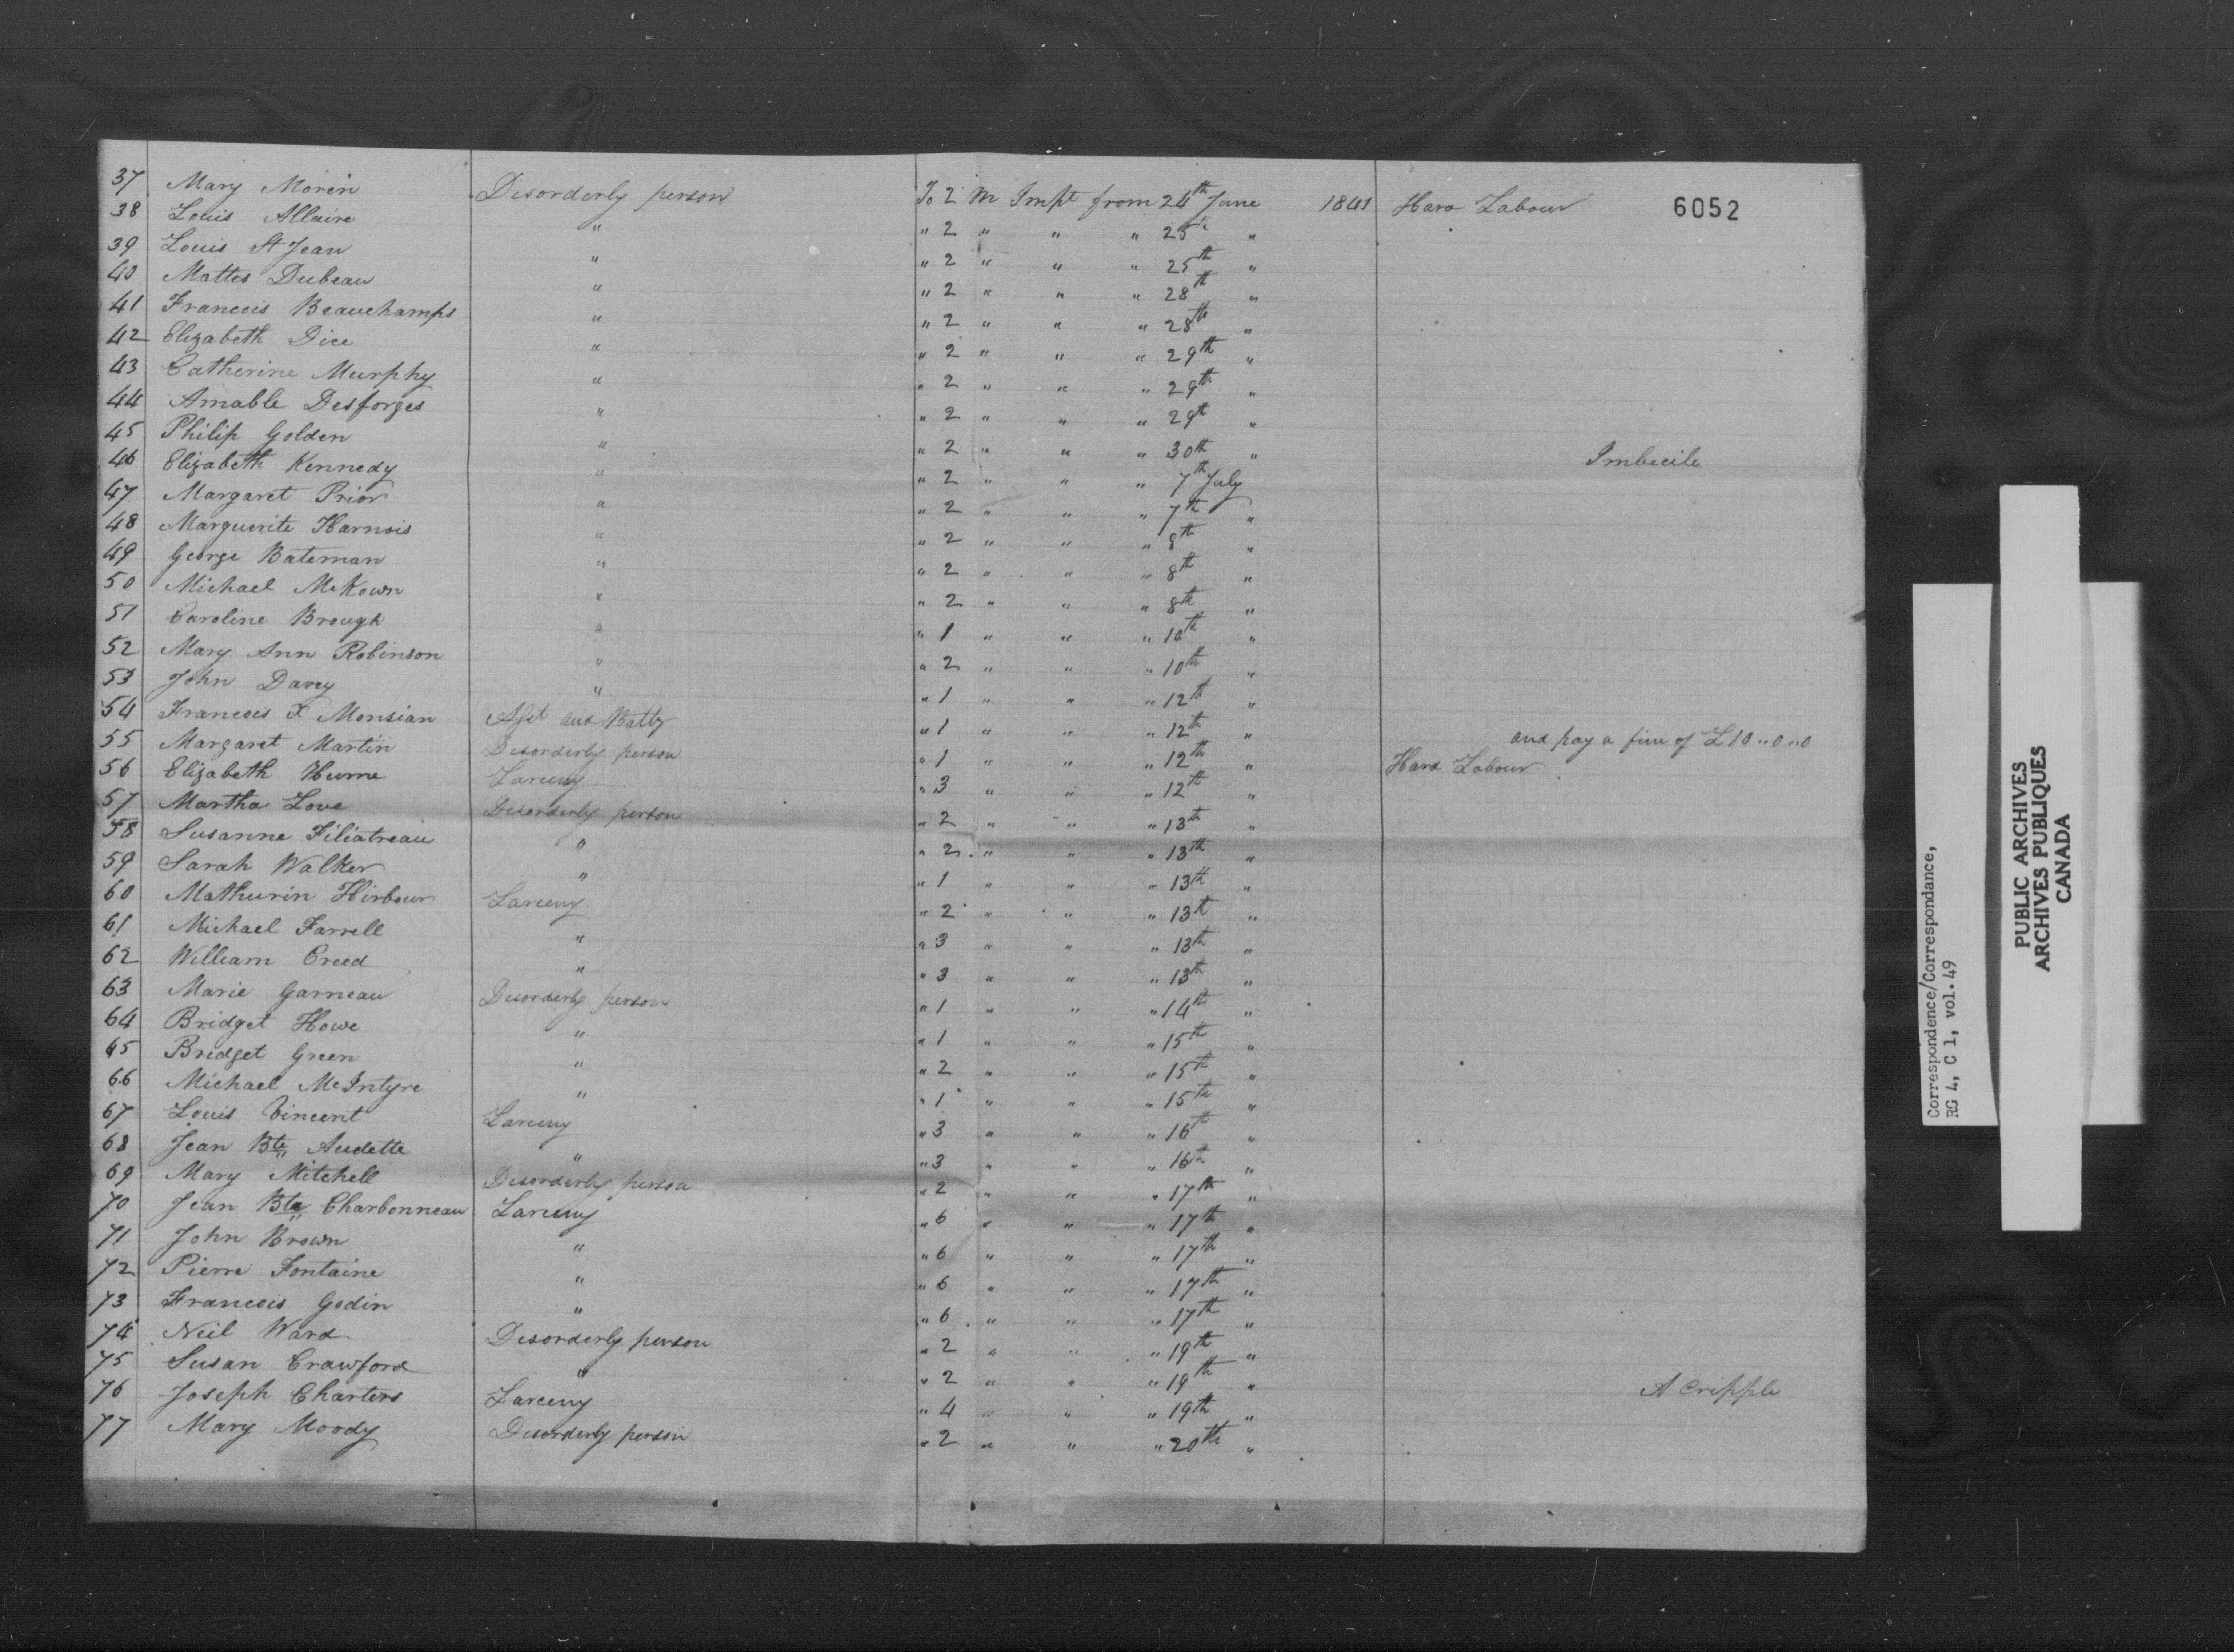 6052
37 Mary Morin Disorderly person To 2 M Impt from 24th June 1841 Hard Labour
38 Louis Allaire " " 2 " " " 25th "
39 Louis St Jean " " 2 " " " 25th "
40 Mattes Dubeau " " 2 " " " 28th "
41 Francois Beauchamps " " 2 " " " 28th "
42 Elizabeth Dice " " 2 " " " 29th "
43 Catherine Murphy " " 2 " " " 29th "
44 Amable Desforges " " 2 " " " 29th "
45 Philip Golden " " 2 " " " 30th "
46 Elizabeth Kennedy " " 2 " " " 7th July Imbecile
47 Margaret Prior " " 2 " " " 7th "
48 Marguerite Harnois " " 2 " " " 8th "
49 George Bateman " " 2 " " " 8th "
50 Michael McKown " " 2 " " " 8th "
51 Caroline Brough " " 1 " " " 10th "
52 Mary Ann Robinson " " 2 " " " 10th "
53 John Davey " " 1 " " " 12th "
54 Francois X Monsian Asst and Batty " 1 " " " 12th " and pay a fine of £10..0..0
55 Margaret Martin Disorderly person " 1 " " " 12th " Hard Labour
56 Elizabeth Hume Larceny " 3 " " " 12th "
57 Martha Love Disorderly person " 2 " " " 13th "
58 Susanne Filiatreau " " 2 " " " 13th "
59 Sarah Walker " " 1 " " " 13th "
60 Mathurin Hirbour Larceny " 2 " " " 13th "
61 Michael Farrell " " 3 " " " 13th "
62 William Creed " " 3 " " " 13th "
63 Marie Garneau Disorderly person " 1 " " " 14th "
64 Bridget Howe " " 1 " " " 15th "
65 Bridget Green " " 2 " " " 15th "
66 Michael McIntyre " " 1 " " " 15th "
67 Louis Vincent Larceny " 3 " " " 16th "
68 Jean Bte Audette " " 3 " " " 16th "
69 Mary Mitchell Disorderly person " 2 " " " 17th "
70 Jean Bte Charbonneau Larceny " 6 " " " 17th "
71 John Brown " " 6 " " " 17th "
72 Pierre Fontaine " " 6 " " " 17th "
73 Francois Godin " " 6 " " " 17th "
74 Neil Ward Disorderly person " 2 " " " 19th "
75 Susan Crawford " " 2 " " " 19th "
76 Joseph Charters Larceny " 4 " " " 19th " A Cripple
77 Mary Moody Disorderly person " 2 " " " 20th "
Correspondence/Correspondance,
RG 4, C 1, vol. 49
PUBLIC ARCHIVES
ARCHIVES PUBLIQUES
CANADA